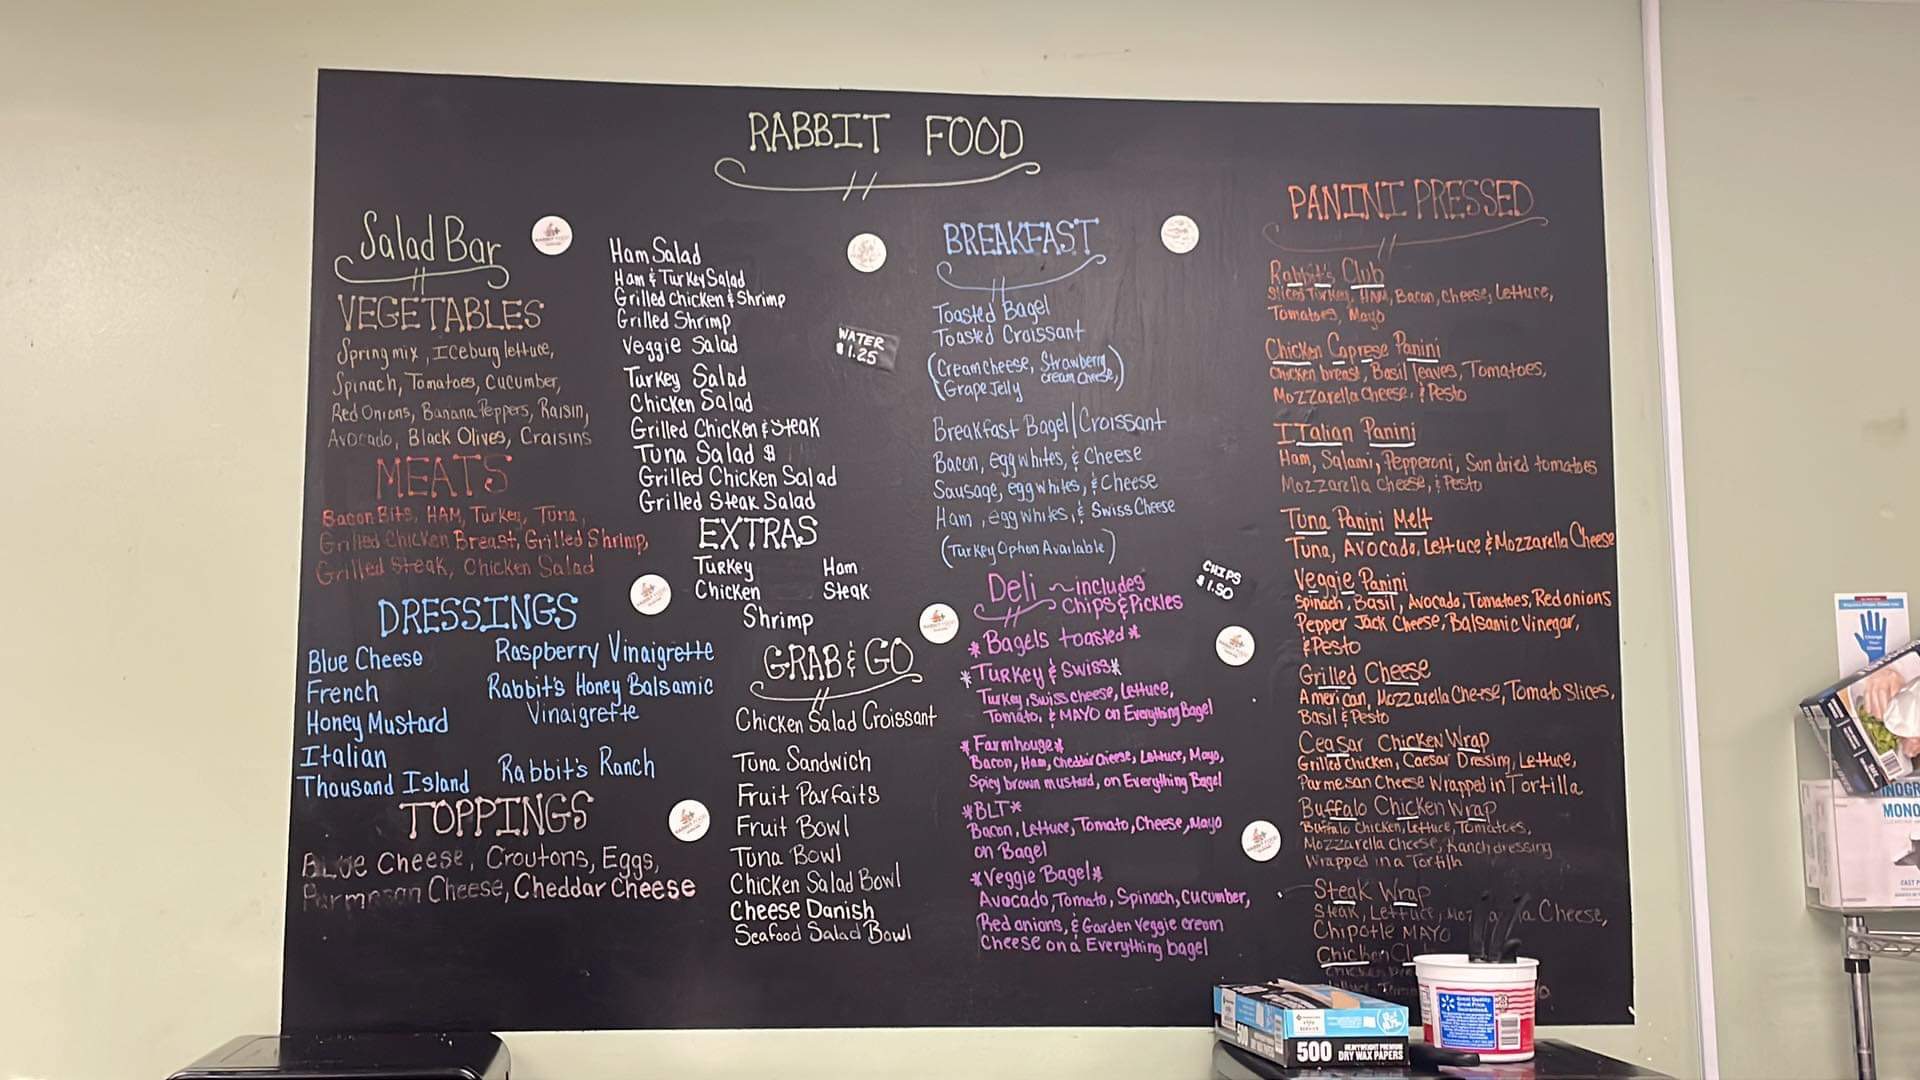 RABBIT FOOD
Salad Bar
VEGETABLES
Spring mix, ICeburg lettuce,
Spinach, Tomatoes, Cucumber,
Red Onions, Banana Peppers, Raisin,
Avocado, Black Olives, Craisins
MEATS
Bacon Bits, HAM, Turkey, Tuna,
Grilled Chicken Breast, Grilled Shrimp,
Grilled Steak, Chicken Salad
DRESSINGS
Blue Cheese
French
Honey Mustard
Italian
Thousand Island
Raspberry Vinaigrette
Rabbit's Honey Balsamic
Vinaigrette
Rabbit's Ranch
TOPPINGS
BLue Cheese, Croutons, Eggs,
Parmesan Cheese, Cheddar Cheese
Ham Salad
Ham & Turkey Salad
Grilled chicken & Shrimp
Grilled Shrimp
Veggie Salad
Turkey Salad
Chicken Salad
Grilled Chicken & Steak
Tuna Salad $
Grilled Chicken Salad
Grilled Steak Salad
EXTRAS
Turkey Ham
Chicken Steak
Shrimp
GRAB & GO
Chicken Salad Croissant
Tuna Sandwich
Fruit Parfaits
Fruit Bowl
Tuna Bowl
Chicken Salad Bowl
Cheese Danish
Seafood Salad Bowl
WATER
$1.25
BREAKFAST
Toasted Bagel
Toasted Croissant
(Cream cheese, Strawberry
cream cheese,
Grape Jelly)
Breakfast Bagel/Croissant
Bacon, egg whites, & Cheese
Sausage, egg whites, & Cheese
Ham, egg whites, & Swiss Cheese
(Turkey Option Available)
CHIPS
$1.50
Deli ~includes
Chips & Pickles
*Bagels toasted*
*Turkey & Swiss*
Turkey, Swiss cheese, Lettuce,
Tomato, & MAYO on Everything Bagel
*Farmhouse*
Bacon, Ham, Cheddar Cheese, Lettuce, Mayo,
Spicy brown mustard, on Everything Bagel
*BLT*
Bacon, Lettuce, Tomato, Cheese, Mayo
on Bagel
*Veggie Bagel*
Avocado, Tomato, Spinach, Cucumber,
Red onions, & Garden Veggie cream
Cheese on a Everything bagel
PANINI PRESSED
Rabbit's Club
Sliced Turkey, HAM, Bacon, Cheese, Lettuce,
Tomatoes, Mayo
Chicken Caprese Panini
Chicken breast, Basil leaves, Tomatoes,
Mozzarella Cheese, & Pesto
ITalian Panini
Ham, Salami, Pepperoni, Son dried tomatoes
Mozzarella Cheese, & Pesto
Tuna Panini Melt
Tuna, Avocado, Lettuce & Mozzarella Cheese
Veggie Panini
Spinach, Basil, Avocado, Tomatoes, Red onions
Pepper Jack Cheese, Balsamic Vinegar,
& Pesto
Grilled Cheese
American, Mozzarella Cheese, Tomato Slices,
Basil & Pesto
Ceasar Chicken Wrap
Grilled Chicken, Caesar Dressing, Lettuce,
Parmesan Cheese Wrapped in Tortilla
Buffalo Chicken Wrap
Buffalo Chicken, Lettuce, Tomatoes,
Mozzarella Cheese, Ranch dressing
Wrapped in a Tortilla
Steak Wrap
Steak, Lettuce, Cheese,
Chipotle MAYO
Chicken
500 HEAVYWEIGHT PREMIUM
DRY WAX PAPERS
Great Quality.
Great Price.
Guaranteed.
MONO